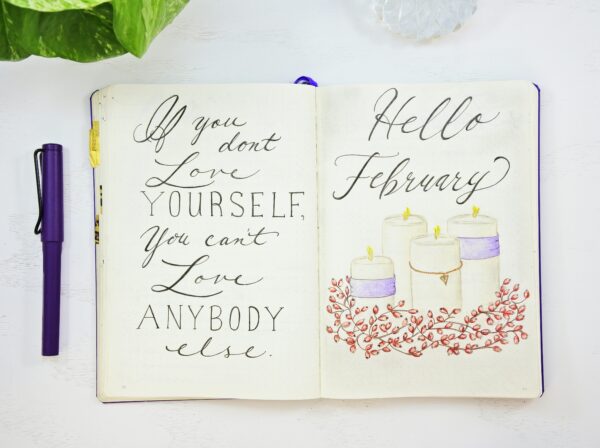 If you
dont
Love
YOURSELF,
You can't
Love
ANYBODY
else.
Hello
February